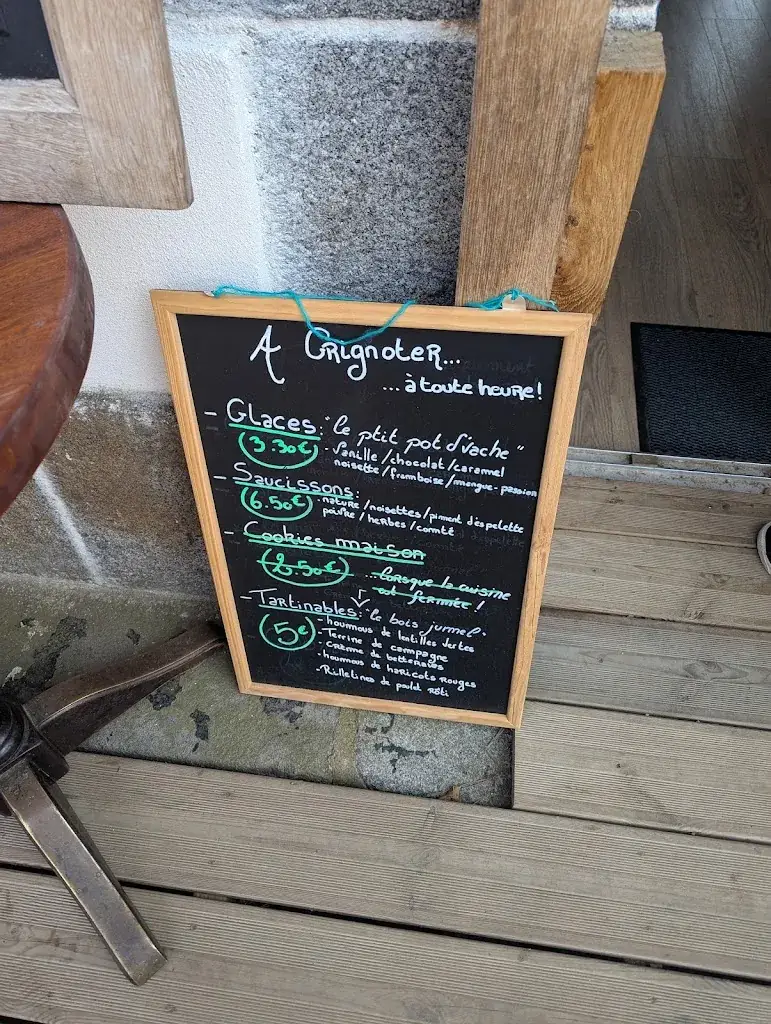 A Grignoter...
...à toute heure!
- Glaces: "le ptit pot d'vache"
3.30€ - Vanille/chocolat/caramel
noisette/framboise/mangue-passion
- Saucissons:
6.50€ - nature/noisettes/piment d'espelette
poivre/herbes/comté
- Cookies maison
2.50€ ...lorsque la cuisine
est fermée!
- Tartinables: le bois jumel.
5€ - houmous de lentilles vertes
- Terrine de campagne
- crème de betteraves
- houmous de haricots rouges
- Rilletines de poulet rôti